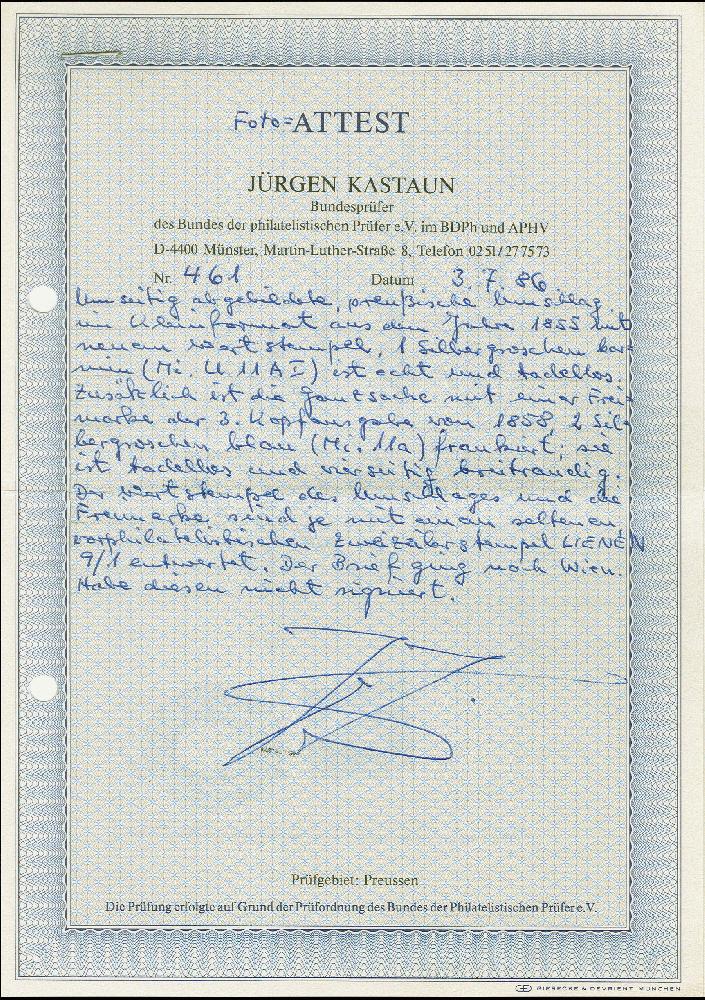 Foto=ATTEST
JÜRGEN KASTAUN
Bundesprüfer
des Bundes der philatelistischen Prüfer e.V. im BDPh und APHV
D-4400 Münster, Martin-Luther-Straße 8, Telefon 0251/277573
Nr. 461 Datum 3.7.86
Umseitig abgebildete, preußische Umschlag
im Kleinformat aus dem Jahre 1855 mit
neuem Wertstempel, 1 Silbergroschen kar-
min (Mi. U 11 A I) ist echt und tadellos.
Zusätzlich ist die Ganzsache mit einer Frei-
marke der 3. Kopfausgabe von 1858, 2 Sil-
bergroschen blau (Mi. 11a) frankiert; sie
ist tadellos und vierseitig breitrandig.
Der Wertstempel des Umschlages und die
Freimarke sind je mit einem seltenen,
vorphilatelistischen Zweizeilerstempel LIENEN
9/1 entwertet. Der Brief ging nach Wien.
Habe diesen nicht signiert.
Prüfgebiet: Preussen
Die Prüfung erfolgte auf Grund der Prüfordnung des Bundes der Philatelistischen Prüfer e.V.
GIESECKE & DEVRIENT MÜNCHEN